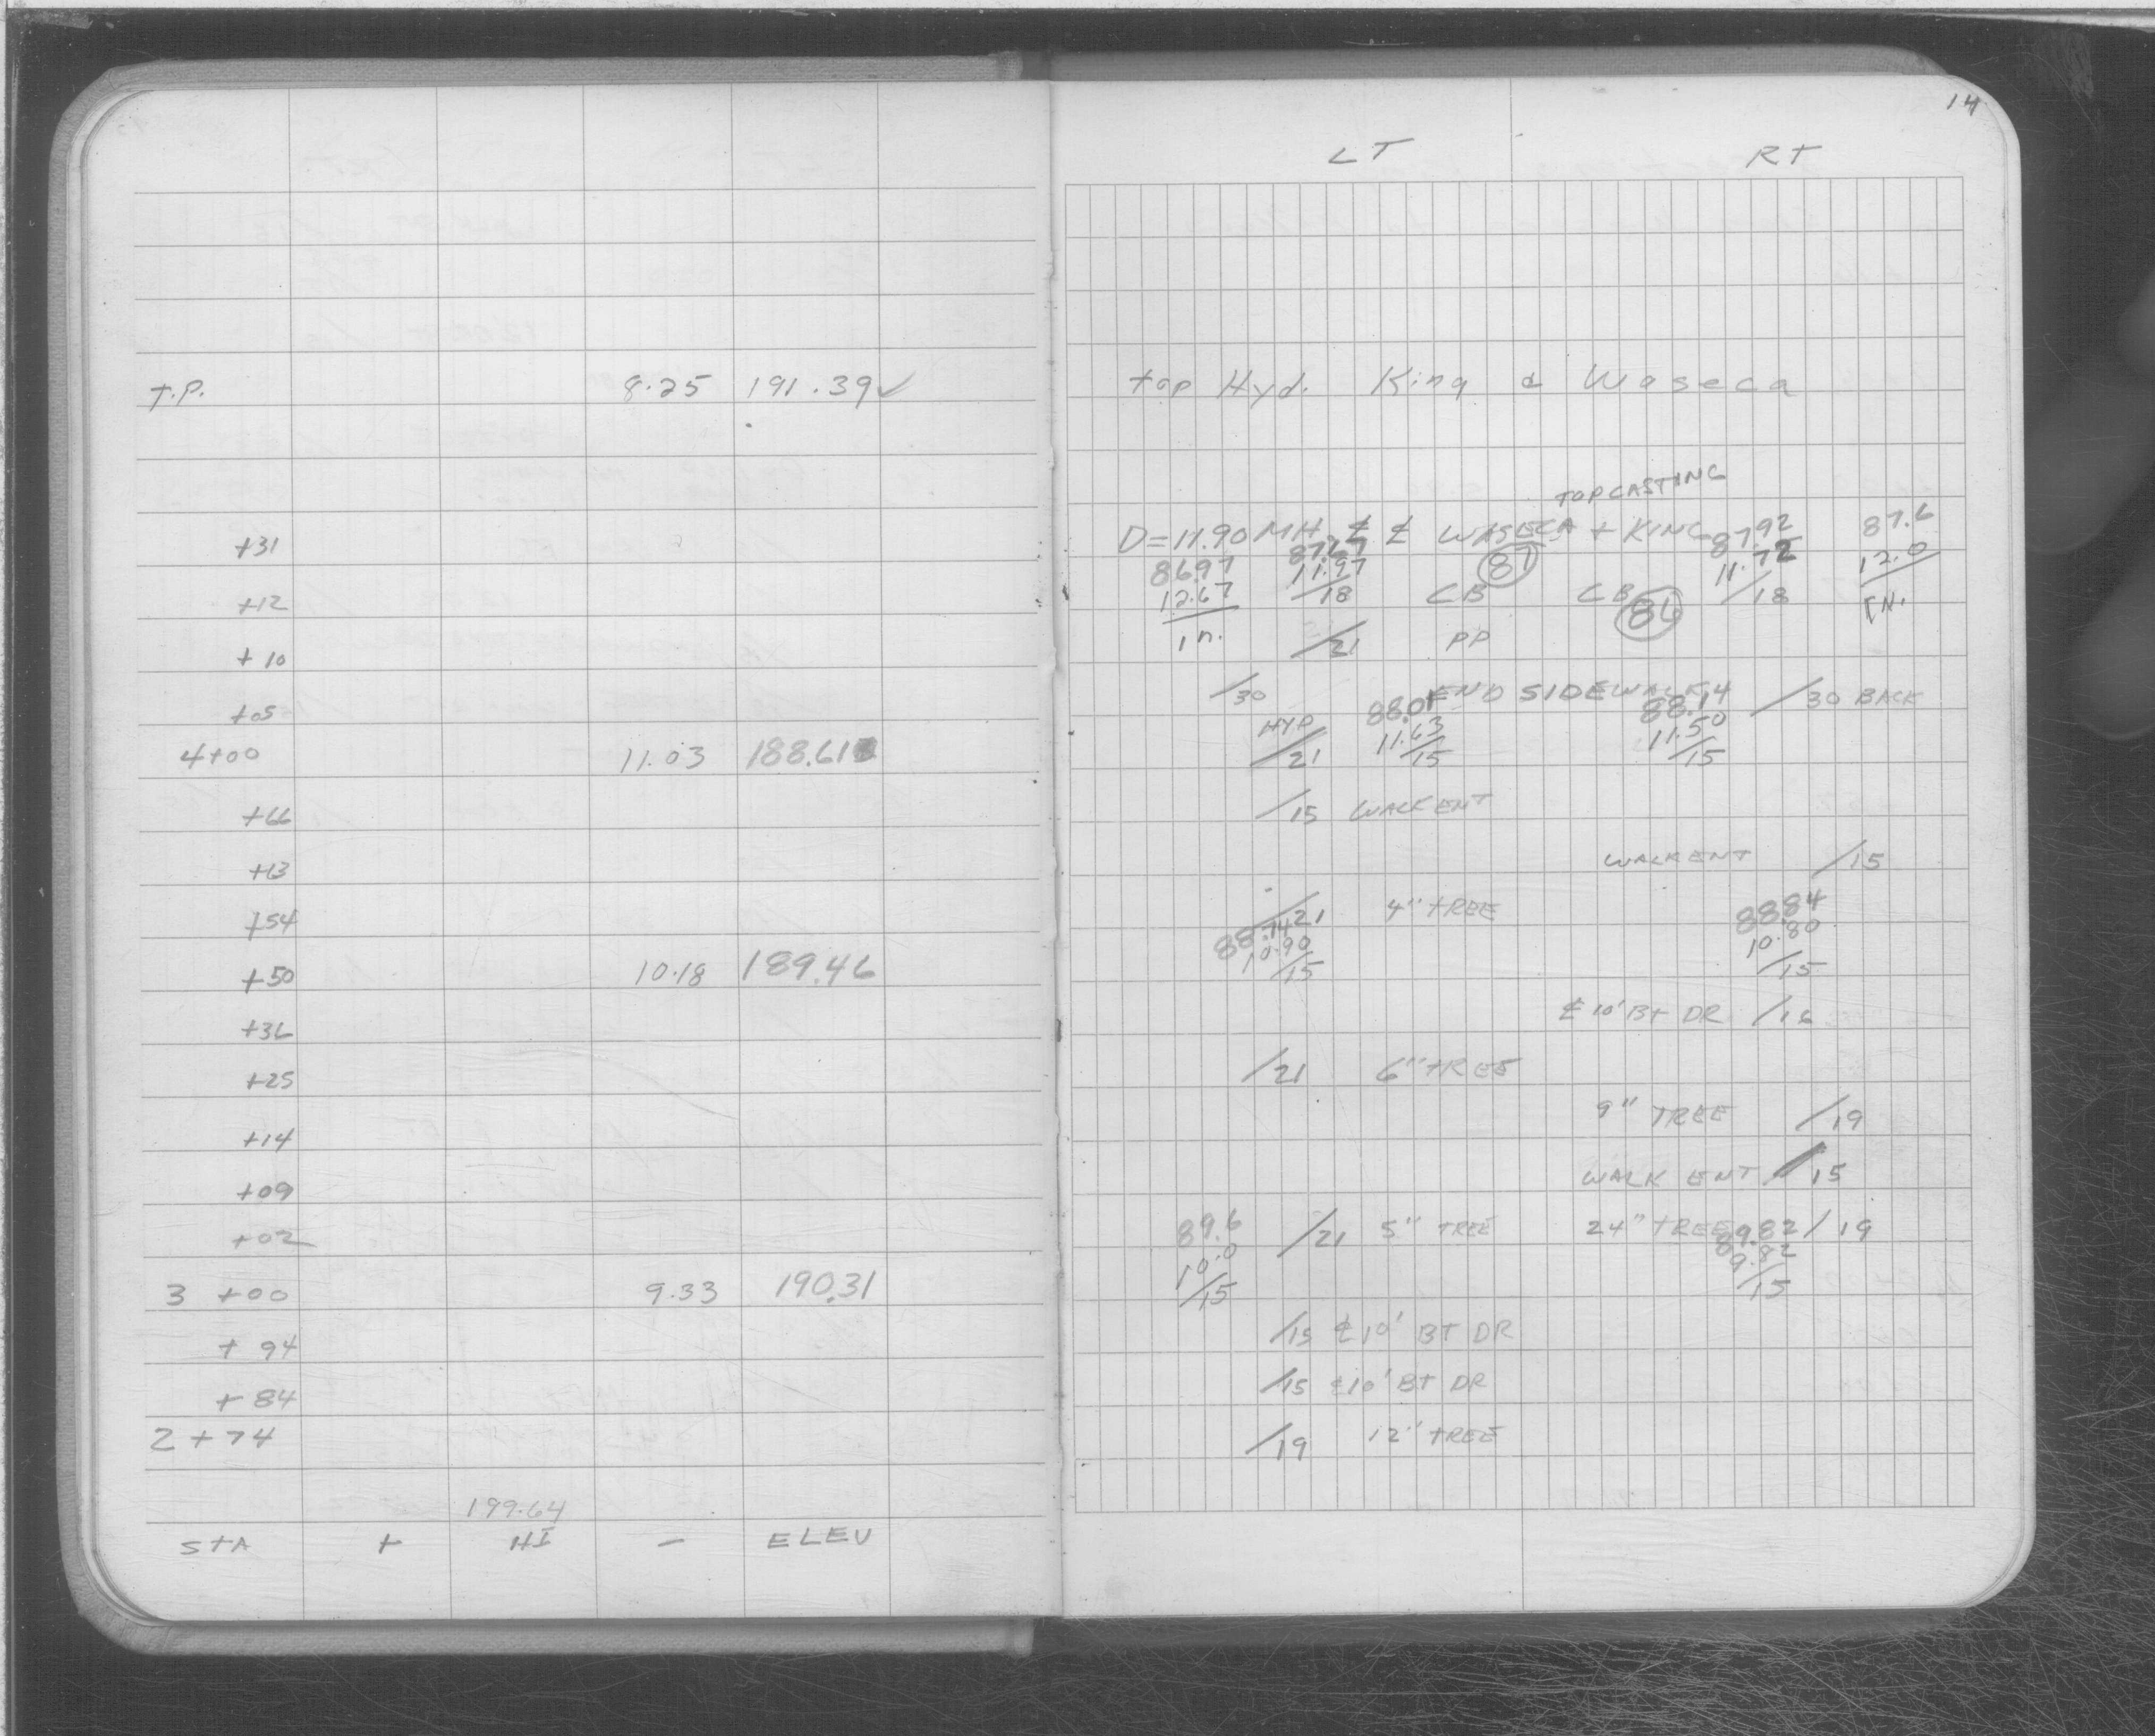 14
LT RT
T.P. 8.25 191.39✓ top Hyd. King & Waseca
TOP CASTING
+31 D=11.90 MH ℄ ℄ WASECA + KING 87.92 87.6
86.97 87.67 87 11.72 12.0
+12 12.67 11.97/18 CB CB 86 /18 IN.
in.
+10 /21 PP
+05 /30 END SIDEWALK /30 BACK
HYD 88.01 88.14
4+00 11.03 188.61 /21 11.63/15 11.50/15
+66 /15 WALK ENT
+63 WALK ENT /15
+54 /21 4" TREE
88.74 88.84
+50 10.18 189.46 10.90/15 10.80/15
+36 ℄ 10' BT DR /16
+25 /21 6" TREE
+14 9" TREE /19
+09 WALK ENT /15
+02 /21 5" TREE 24" TREE /19
89.6 89.82
3+00 9.33 190.31 10.0/15 9.82/15
+94 /15 ℄ 10' BT DR
+84 /15 ℄ 10' BT DR
2+74 /19 12" TREE
199.64
STA + HI - ELEV